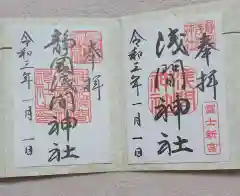 奉拝
冨士新宮
淺間神社
令和三年一月一日
奉拝
静岡淺間神社
令和三年一月一日